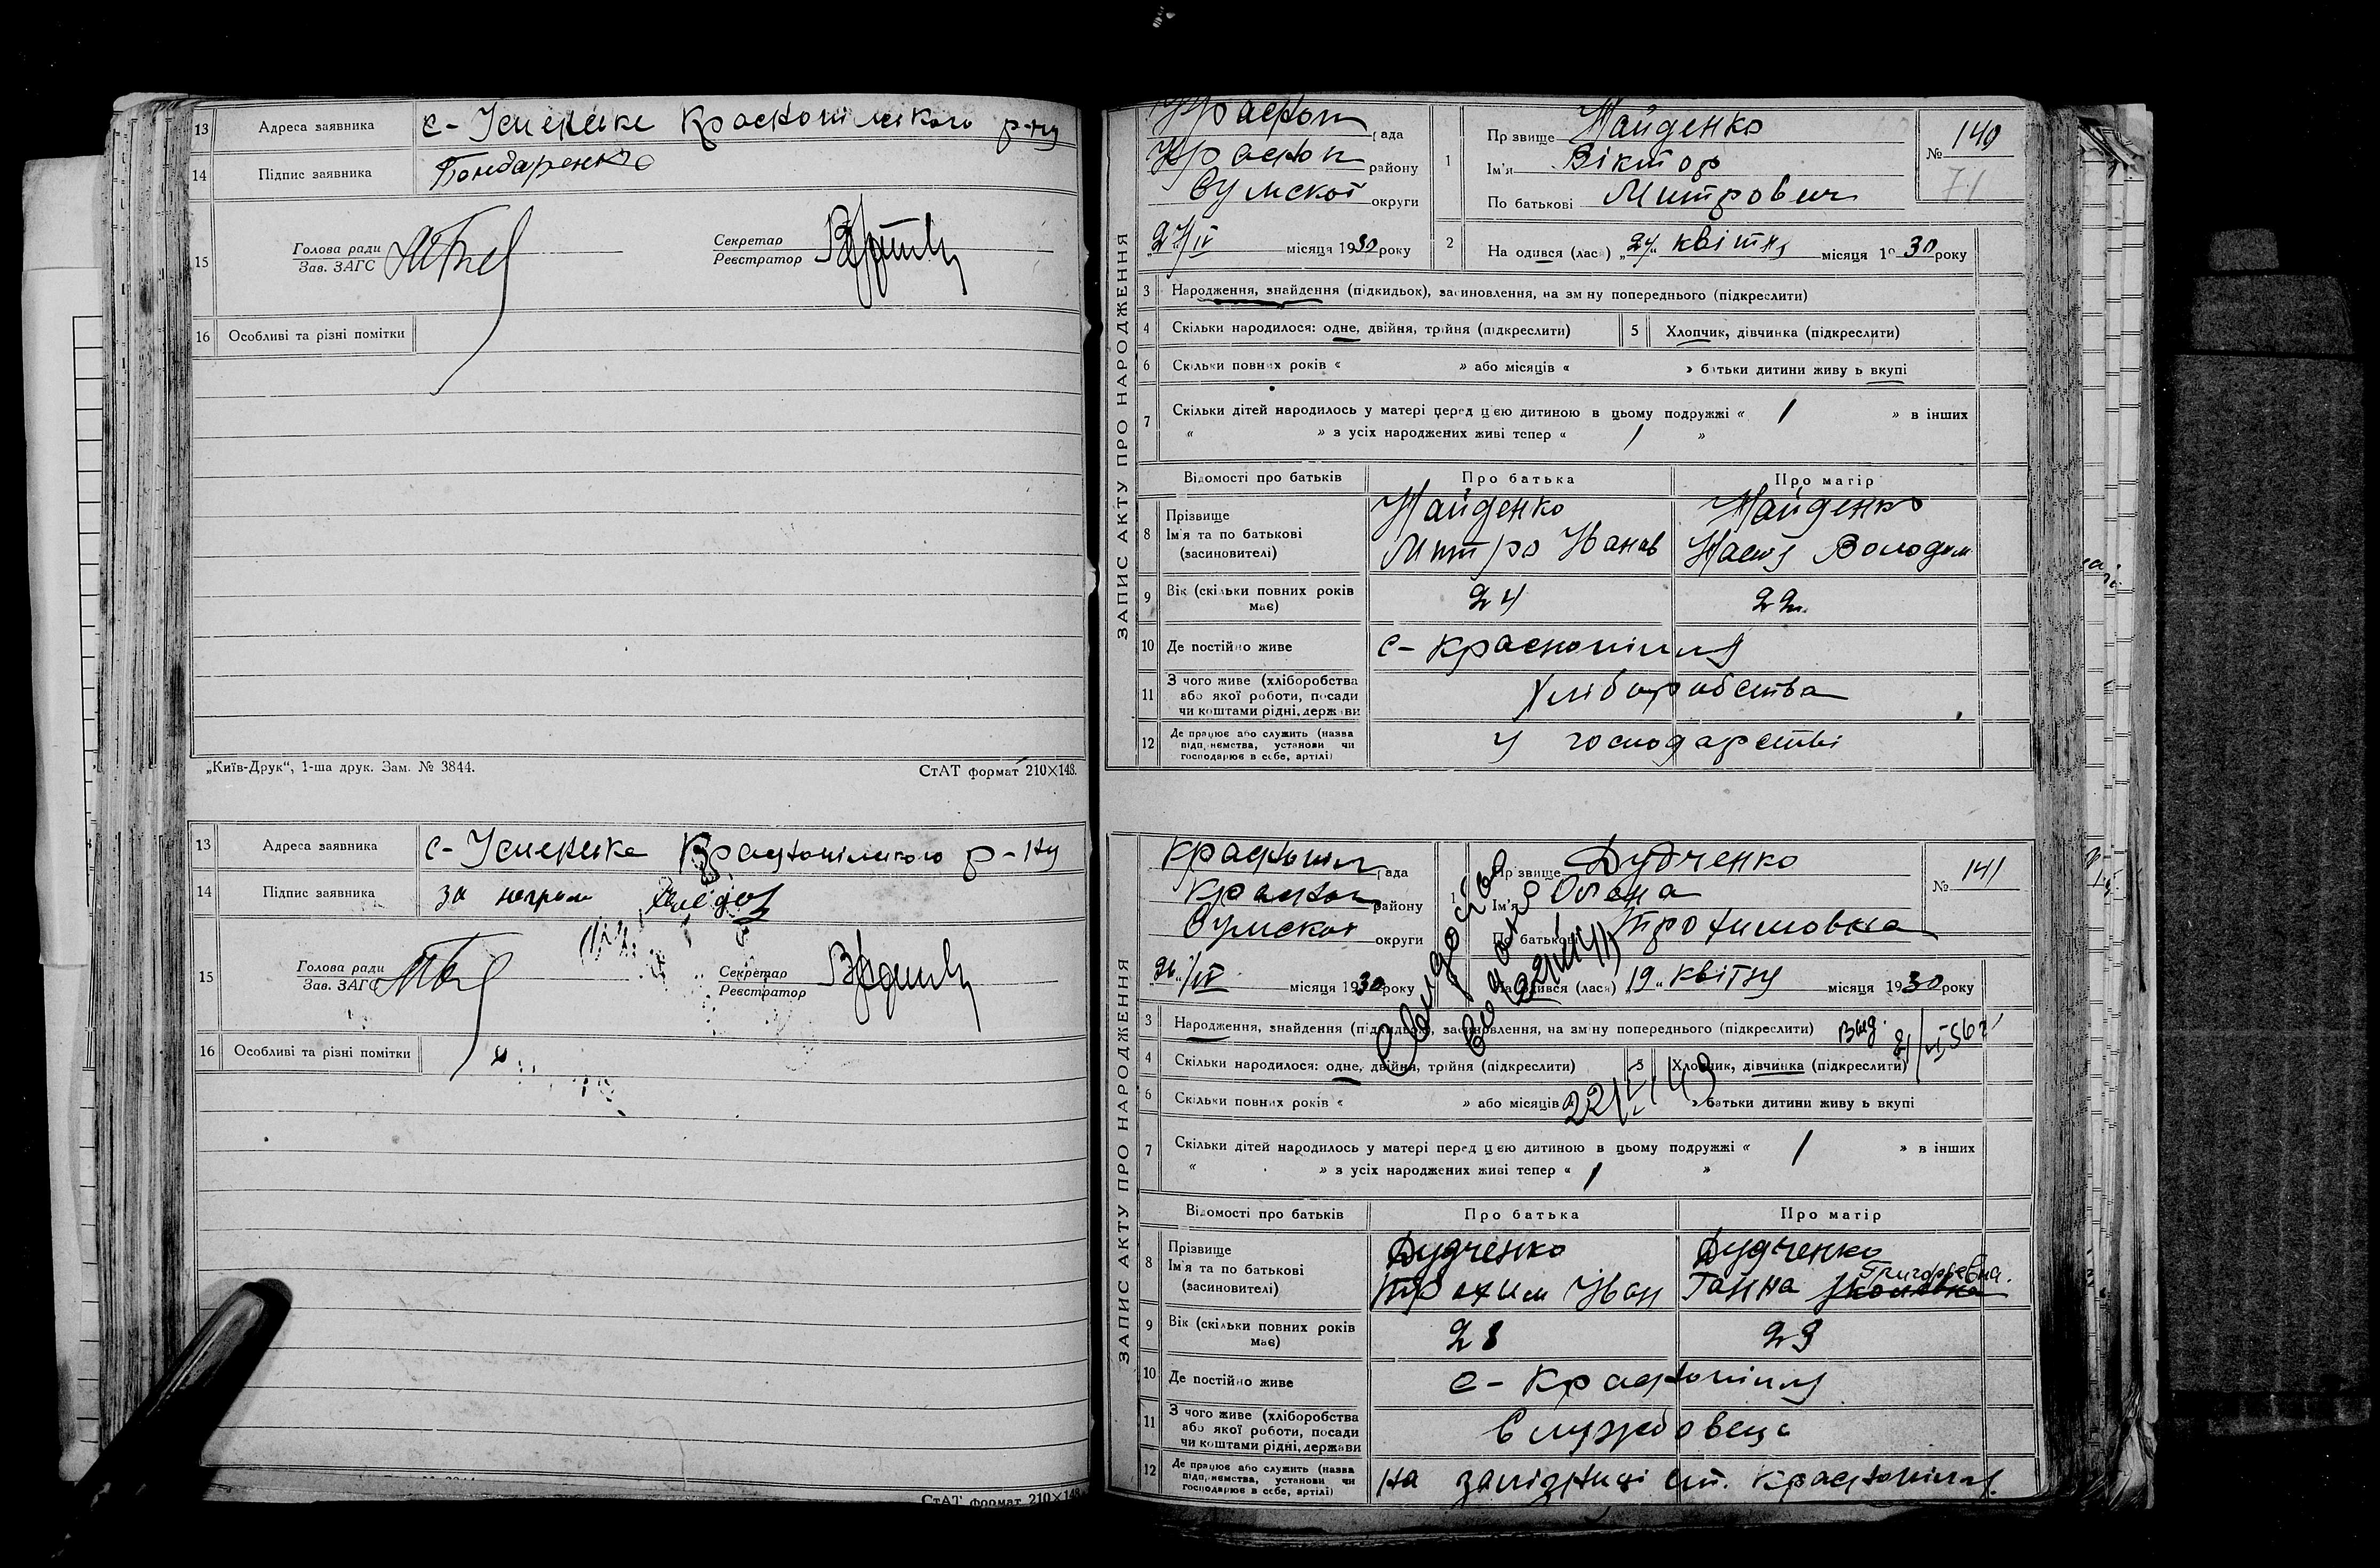 13 Адреса заявника с-Успенське Краснопільського р-ну
14 Підпис заявника Бондаренко
15 Голова ради
Зав. ЗАГС
Секретар
Реєстратор
16 Особливі та різні помітки
„Київ-Друк“, 1-ша друк. Зам. № 3844. СтАТ формат 210×148.
13 Адреса заявника с-Успенське Краснопільського р-ну
14 Підпис заявника за неграм
15 Голова ради
Зав. ЗАГС
Секретар
Реєстратор
16 Особливі та різні помітки
СтАТ формат 210×148
ЗАПИС АКТУ ПРО НАРОДЖЕННЯ
Красноп рада
Красноп району
Сумскої округи
„27/IV місяця 1930 року
1 Прізвище Найденко
Ім'я Віктор
По батькові Митрович
№ 140
71
2 Народився (лась) „24“ квітня місяця 1930 року
3 Народження, знайдення (підкидьок), засиновлення, на зміну попереднього (підкреслити)
4 Скільки народилося: одне, двійня, трійня (підкреслити) 5 Хлопчик, дівчинка (підкреслити)
6 Скільки повних років « » або місяців « » батьки дитини живуть вкупі
7 Скільки дітей народилось у матері перед цією дитиною в цьому подружжі « 1 » в інших
« » з усіх народжених живі тепер « 1 »
Відомості про батьків Про батька Про матір
8 Прізвище
Ім'я та по батькові
(засиновителі)
Найденко
Митро Іванов
Найденко
Настя Володим
9 Вік (скільки повних років має) 24 22
10 Де постійно живе с-Краснопілля
11 З чого живе (хліборобства
або якої роботи, посади
чи коштами рідні, держави
Хліборобства
12 Де працює або служить (назва
підприємства, установи чи
господарює в себе, артілі)
У господарстві
ЗАПИС АКТУ ПРО НАРОДЖЕННЯ
Краснопіл рада
Красноп району
Сумскої округи
„26“/IV місяця 1930 року
1 Прізвище Дудченко
Ім'я Олена
По батькові Трохимовна
№ 141
Народився (лась) „19“ квітня місяця 1930 року
3 Народження, знайдення (підкидьок), засиновлення, на зміну попереднього (підкреслити)
4 Скільки народилося: одне, двійня, трійня (підкреслити) 5 Хлопчик, дівчинка (підкреслити)
6 Скільки повних років « » або місяців « » батьки дитини живуть вкупі
7 Скільки дітей народилось у матері перед цією дитиною в цьому подружжі « 1 » в інших
« » з усіх народжених живі тепер « 1 »
Відомості про батьків Про батька Про матір
8 Прізвище
Ім'я та по батькові
(засиновителі)
Дудченко
Трохим Іван
Дудченко
Ганна Григорьевна.
9 Вік (скільки повних років має) 28 29
10 Де постійно живе с-Краснопілля
11 З чого живе (хліборобства
або якої роботи, посади
чи коштами рідні, держави
Службовець
12 Де працює або служить (назва
підприємства, установи чи
господарює в себе, артілі)
на залізниці ст. Краснопілля.